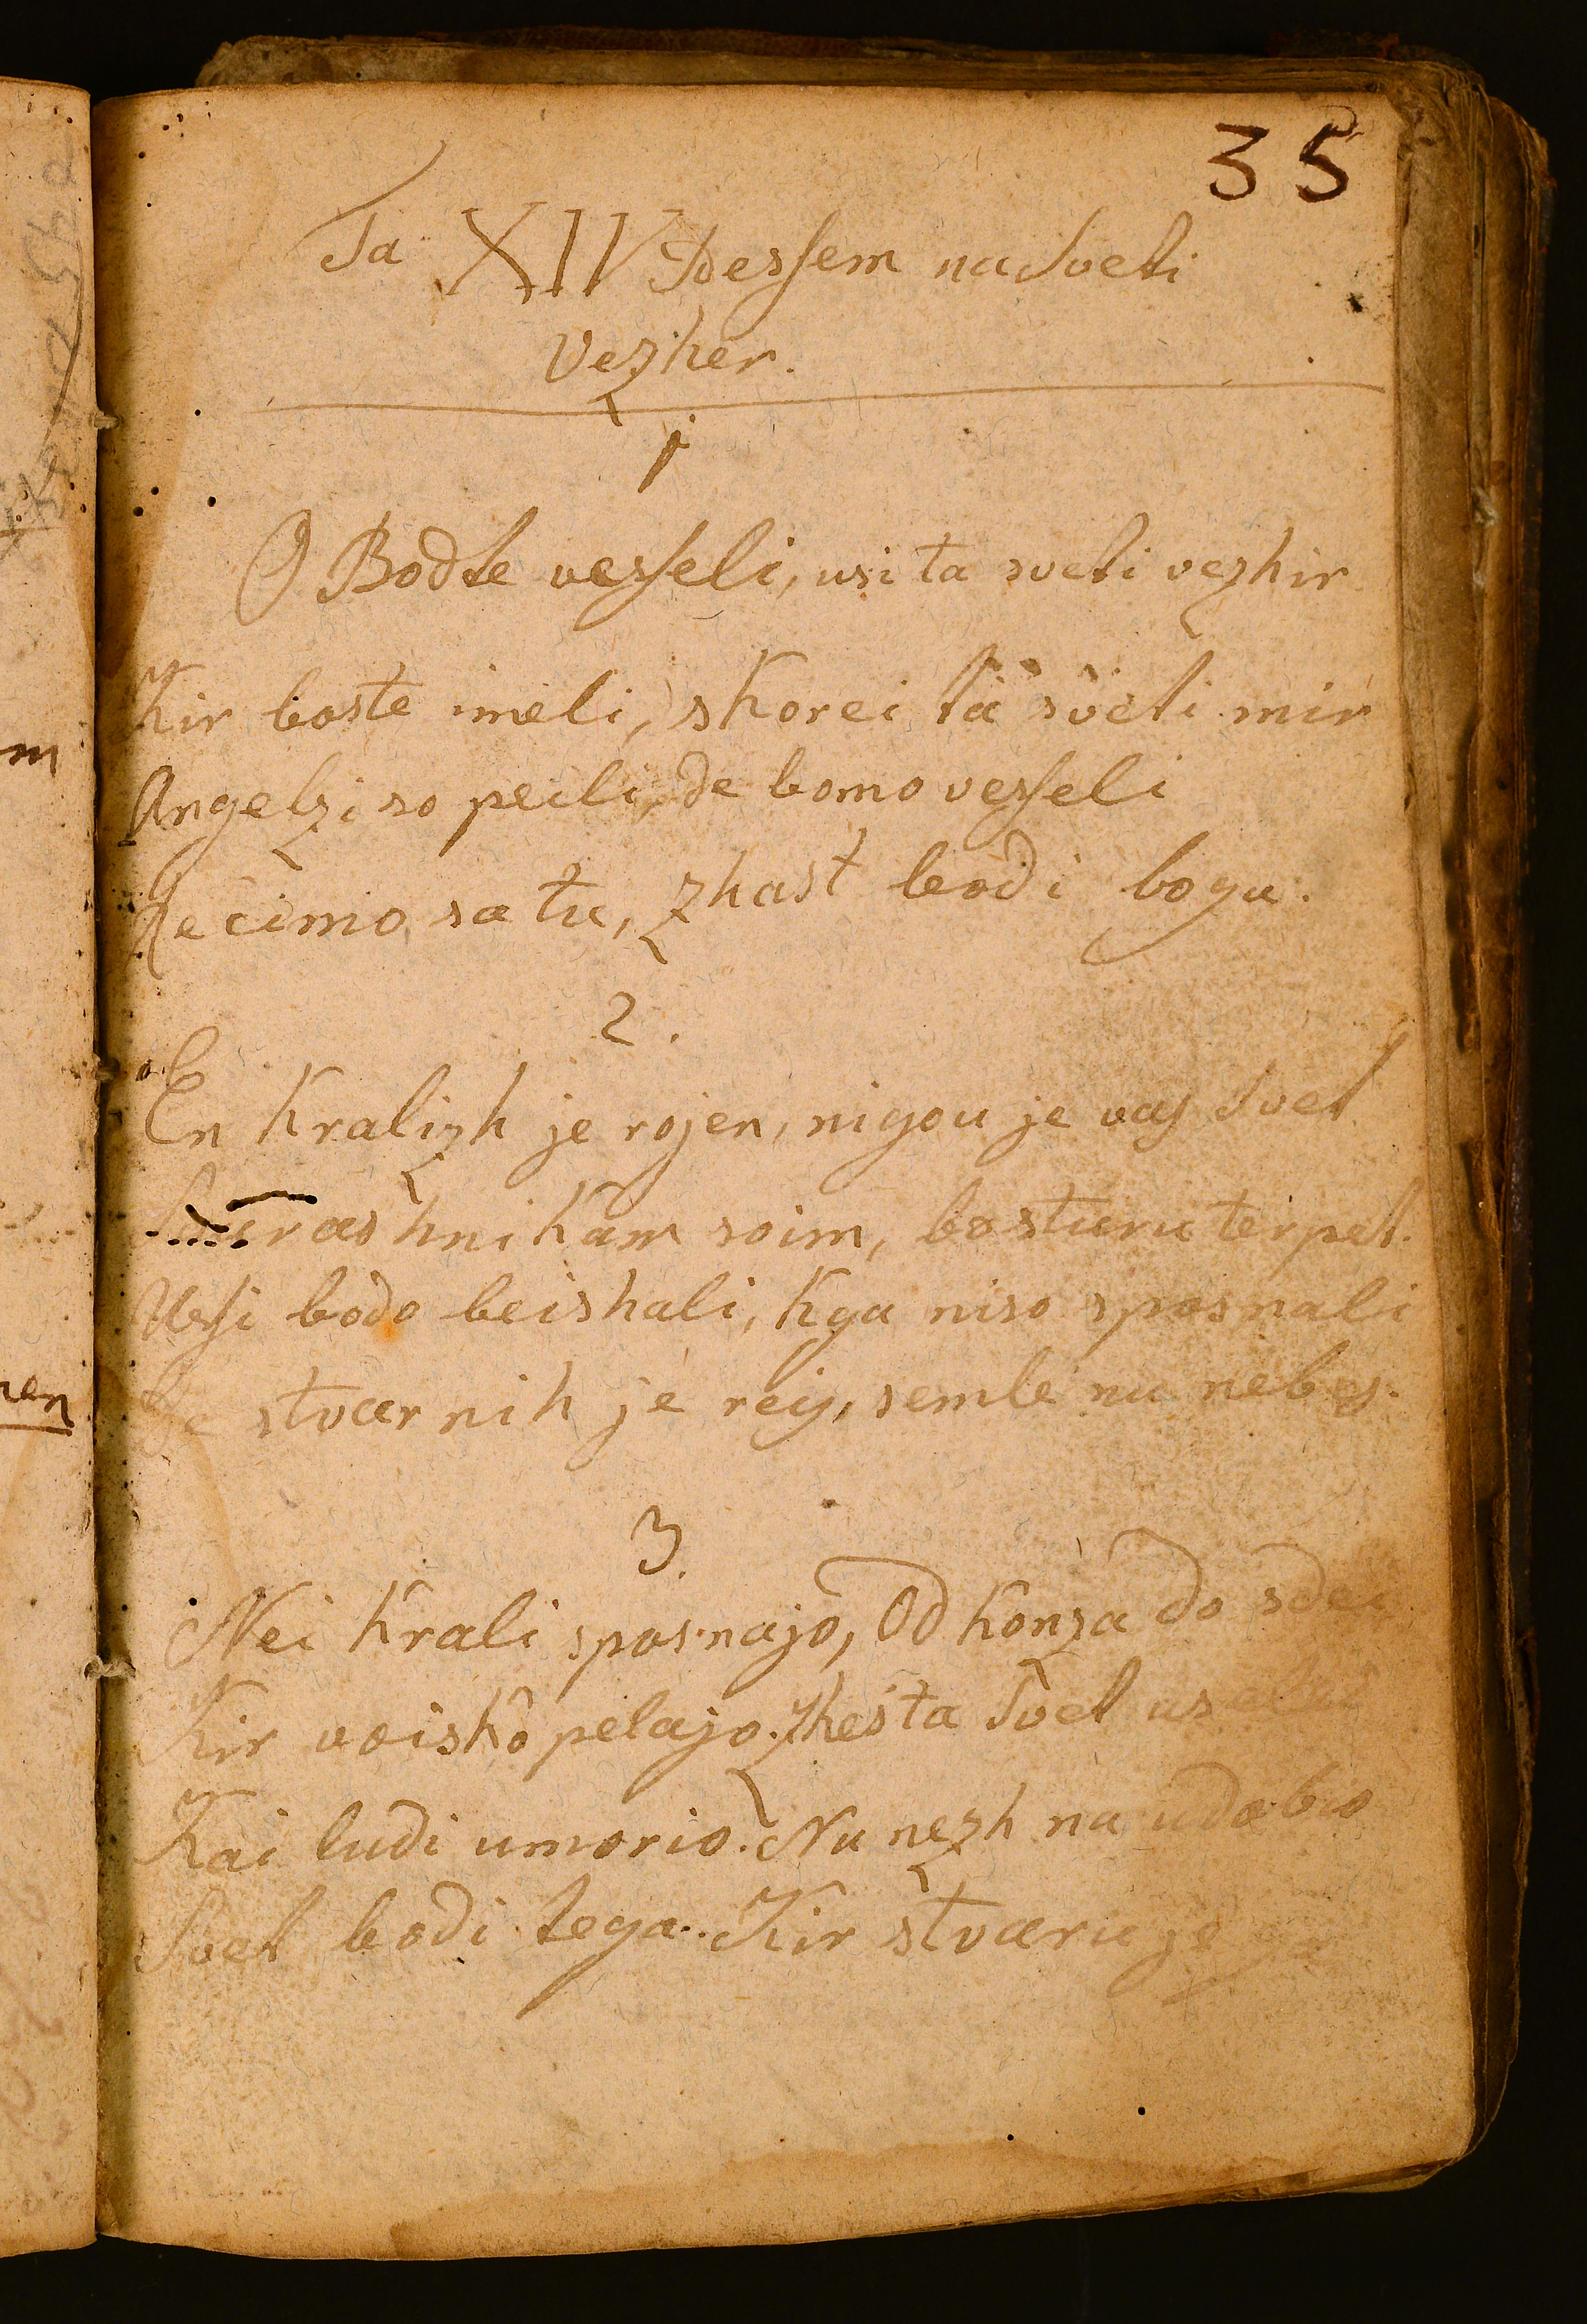 35
Ta XIV Pessem na Sveti
Vezher.
1
O Bodte vesseli, usi ta sveti vezhir
Kir boste imeli, skorei ta sveti mir
Angelzi so peili, de bomo vesseli
Recimo sa tu, zhast bodi bogu.
2.
En Kralizh je rojen, nigou je vas Svet
hnikam soim, bo sturu terpet.
Ussi bodo beishali, Kga niso sposnali
stvarnih je reiz, semle nu nebes.
3.
Nei Krali sposnajo, Od Konza do sdei
Kir voisko pelajo. Zhes ta Svet
Kai ludi umorio. Nu nezh na udobio
Svet bodi tega. Kir stvaru je